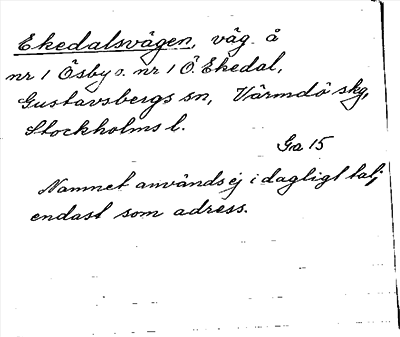 Ekedalsvägen, väg å
nr 1 Ösby o. nr 1 Ö. Ekedal,
Gustavsbergs sn, Värmdö skg,
Stockholms l.
Ga 15
Namnet används ej i dagligt tal,
endast som adress.